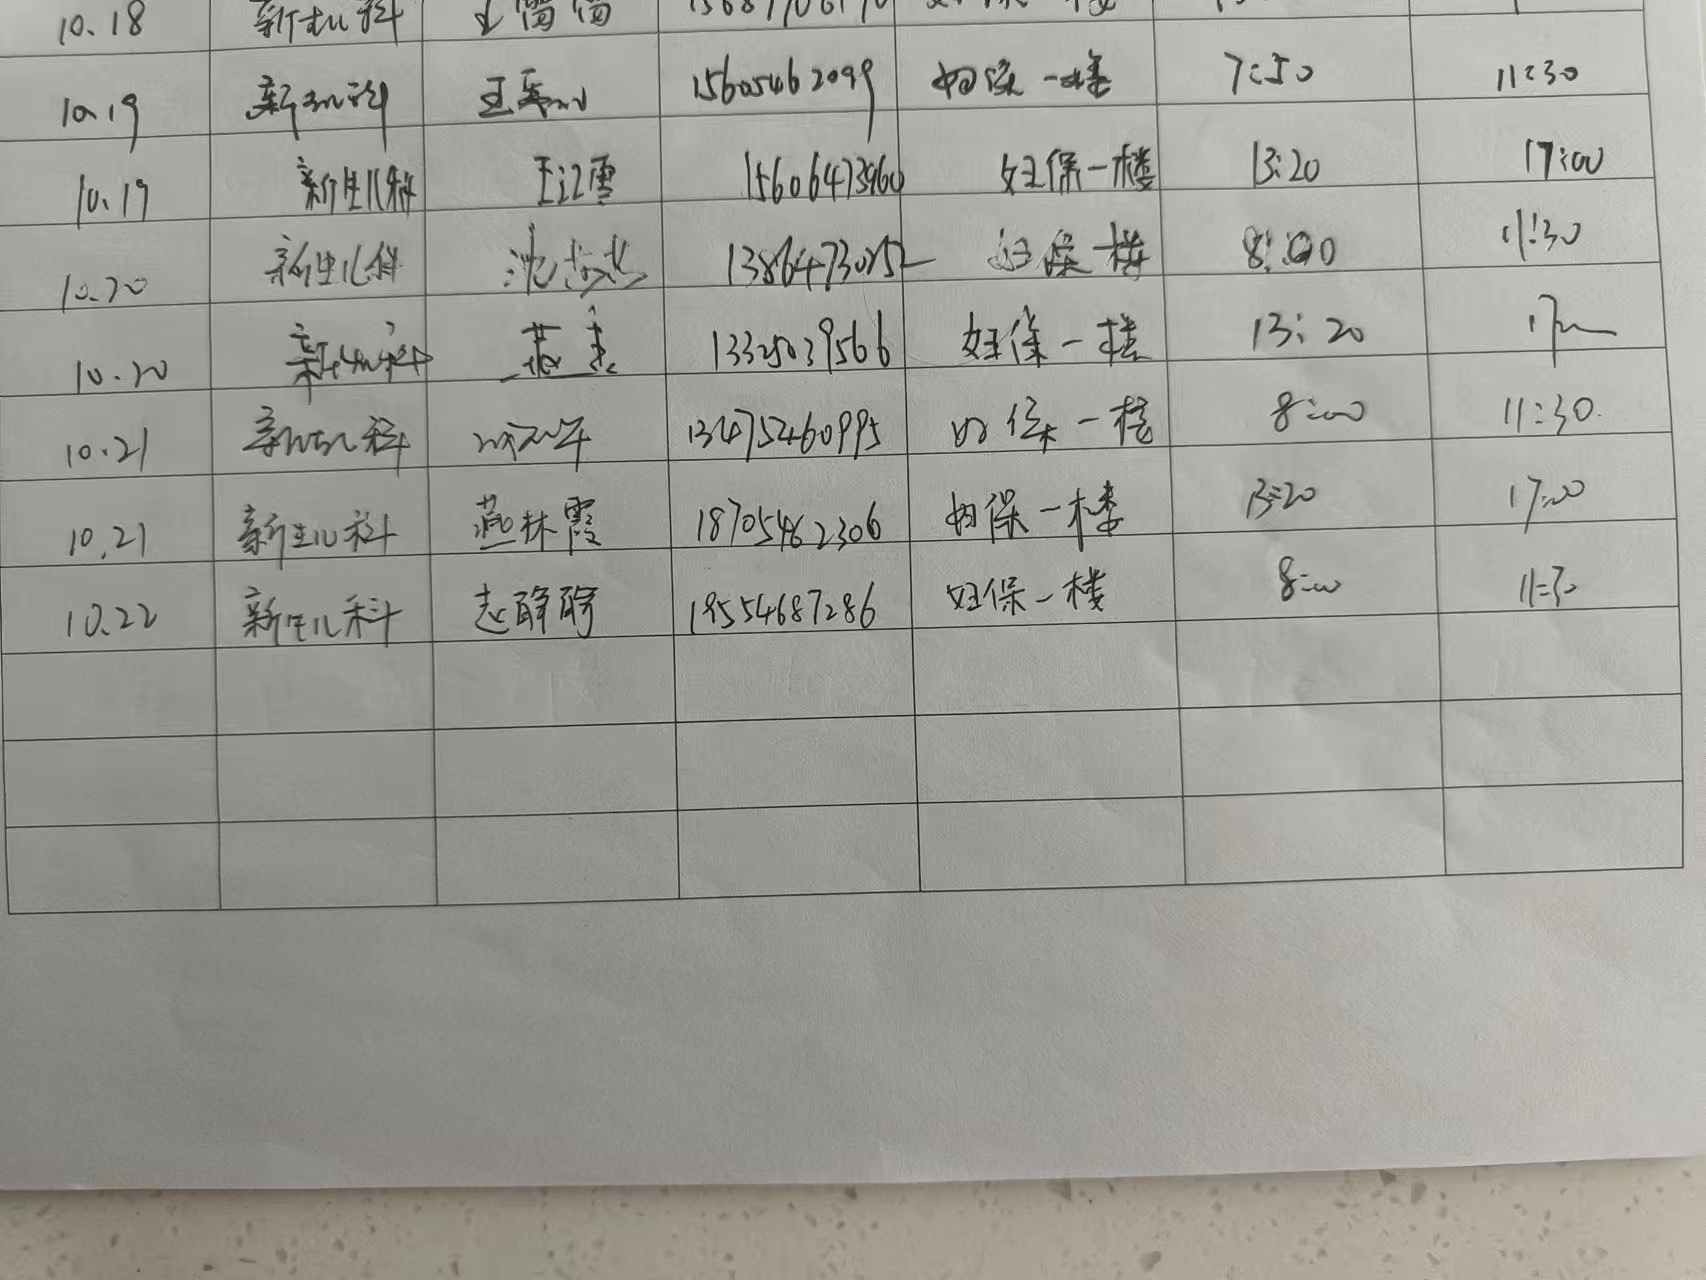 10.18 新生儿科
10.19 新生儿科 15605462099 妇保一楼 7:50 11:30
10.19 新生儿科 王江雪 15606473960 妇保一楼 13:20 17:00
10.20 新生儿科 13864730252 妇保一楼 8:00 11:30
10.20 新生儿科 13325039566 妇保一楼 13:20
10.21 新生儿科 13475460995 妇保一楼 8:00 11:30
10.21 新生儿科 燕林霞 18705462306 妇保一楼 13:20 17:00
10.22 新生儿科 18554687286 妇保一楼 8:00 11:30